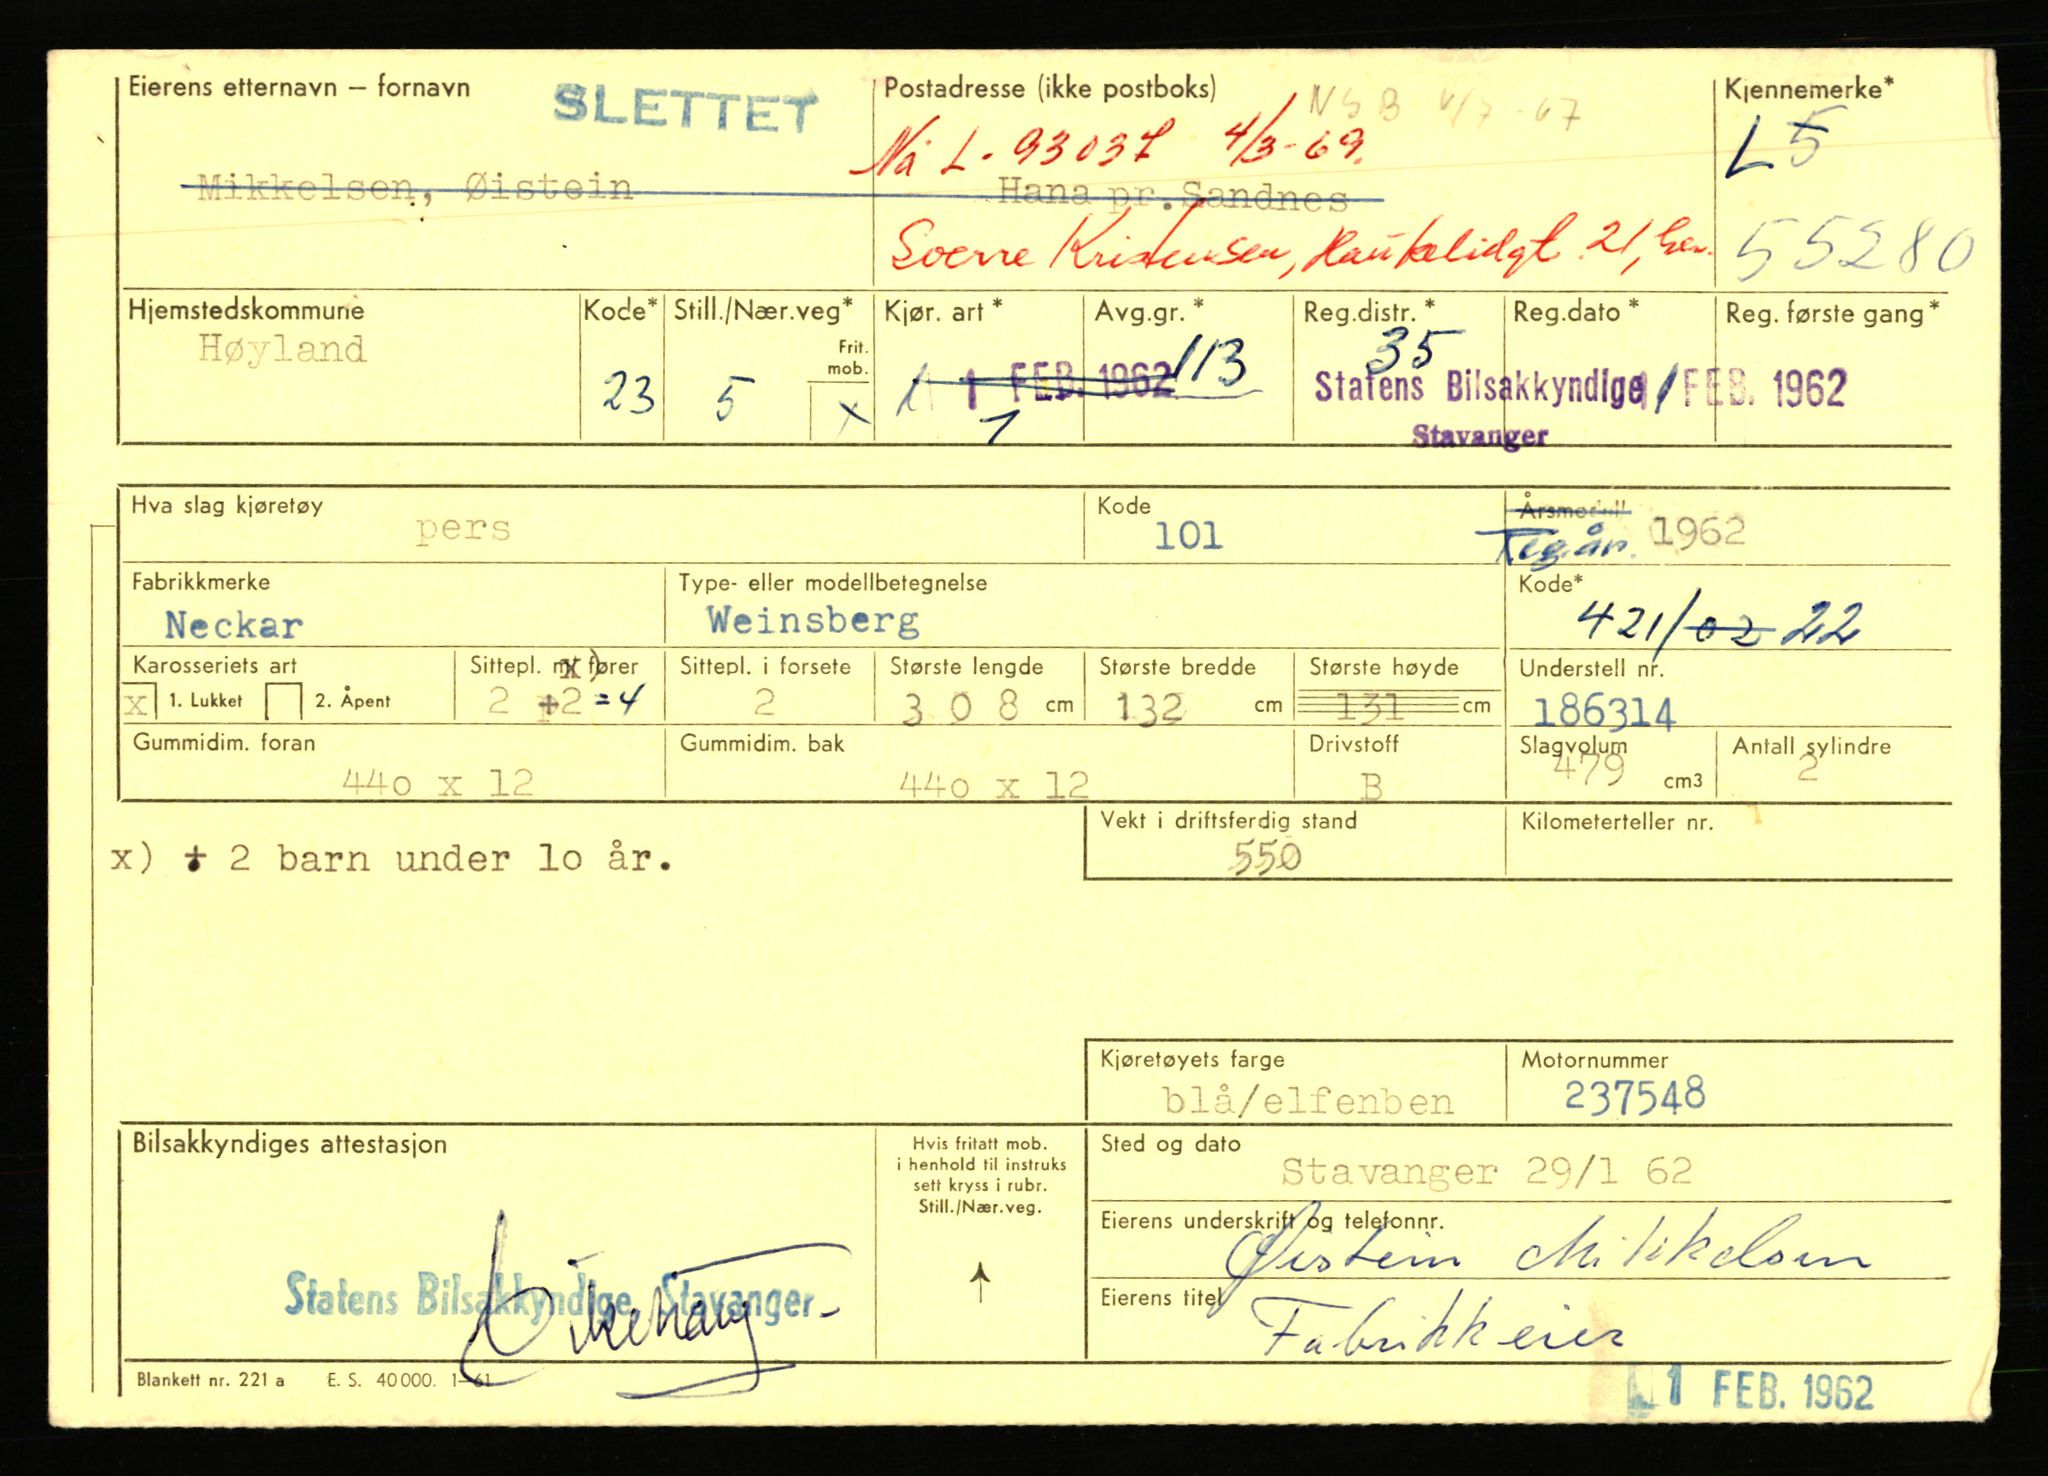 Eierens etternavn – fornavn
SLETTET
Postadresse (ikke postboks)
NSB 4/7-67
Kjennemerke*
Nå L-93037 4/3-69.
L5
Mikkelsen, Øistein
Hana pr. Sandnes
Sverre Kristensen, Haukelidgt. 21,
55280
Hjemstedskommune
Kode*
Still./Nær.veg*
Kjør. art *
Avg.gr. *
Reg.distr. *
Reg.dato *
Reg. første gang *
Høyland
Frit.
mob.
23
5
x
1 FEB. 1962
1
113
35
Statens Bilsakkyndige
Stavanger
1 FEB. 1962
Hva slag kjøretøy
pers
Kode
101
Årsmodell
Reg.år.
1962
Fabrikkmerke
Neckar
Type- eller modellbetegnelse
Weinsberg
Kode*
421/02 22
Karosseriets art
x 1. Lukket
2. Åpent
Sittepl. m/ fører
x)
2 +2 =4
Sittepl. i forsete
2
Største lengde
308 cm
Største bredde
132 cm
Største høyde
131 cm
Understell nr.
186314
Gummidim. foran
440 x 12
Gummidim. bak
440 x 12
Drivstoff
B
Slagvolum
479 cm3
Antall sylindre
2
x) + 2 barn under lo år.
Vekt i driftsferdig stand
550
Kilometerteller nr.
Kjøretøyets farge
blå/elfenben
Motornummer
237548
Bilsakkyndiges attestasjon
Statens Bilsakkyndige Stavanger
Hvis fritatt mob.
i henhold til instruks
sett kryss i rubr.
Still./Nær.veg.
Sted og dato
Stavanger 29/1 62
Eierens underskrift og telefonnr.
Øistein Mikkelsen
Eierens titel
Fabrikkeier
Blankett nr. 221 a E. S. 40 000. 1–61
1 FEB. 1962